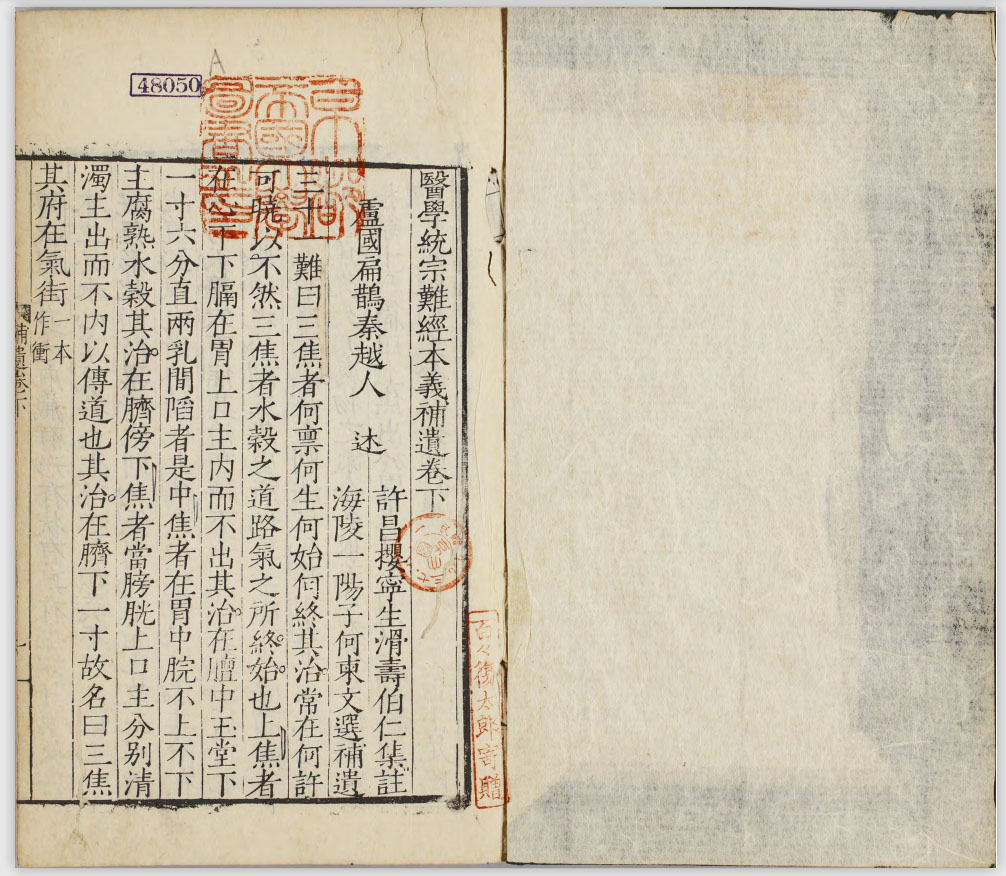 醫學統宗難經本義補遺卷下
許昌攖寧生滑壽伯仁集註
盧國扁鵲秦越人 述
海陵一陽子何柬文選補遺
三十一難曰三焦者何稟何生何始何終其治常在何許
可曉以不然三焦者水榖之道路氣之所終始也上焦者
在心下下膈在胃上口主内而不出其治在膻中玉堂下
一寸六分直兩乳間陷者是中焦者在胃中脘不上不下
主腐熟水榖其治在臍傍下焦者當膀胱上口主分别清
濁主出而不内以傳道也其治在臍下一寸故名曰三焦
其府在氣街一本作衝
補遺卷下
一
48050
A
百々復太郎寄贈